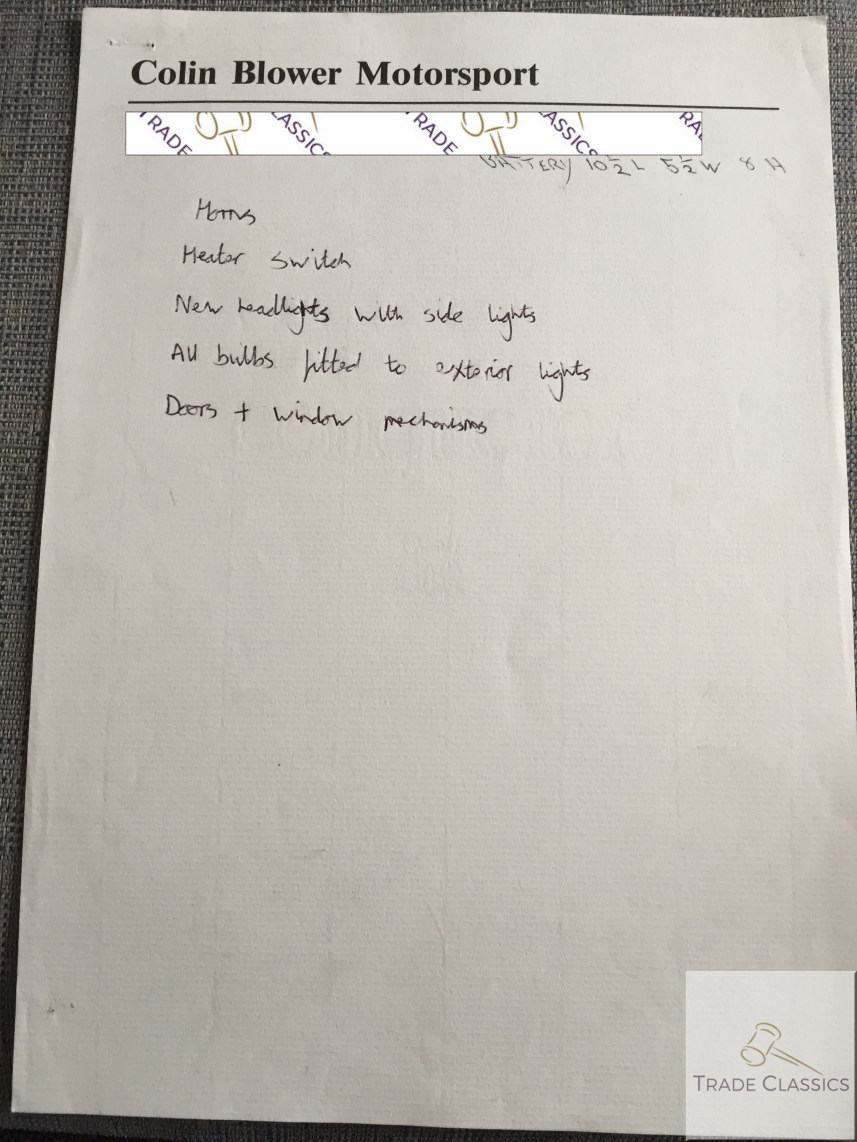 Colin Blower Motorsport
TRADE CLASSICS TRADE CLASSICS TRA
BATTERY 10½ L 5½ W 8 H
Horns
Heater switch
New headlights with side lights
All bulbs fitted to exterior lights
Doors + window mechanisms
TRADE CLASSICS